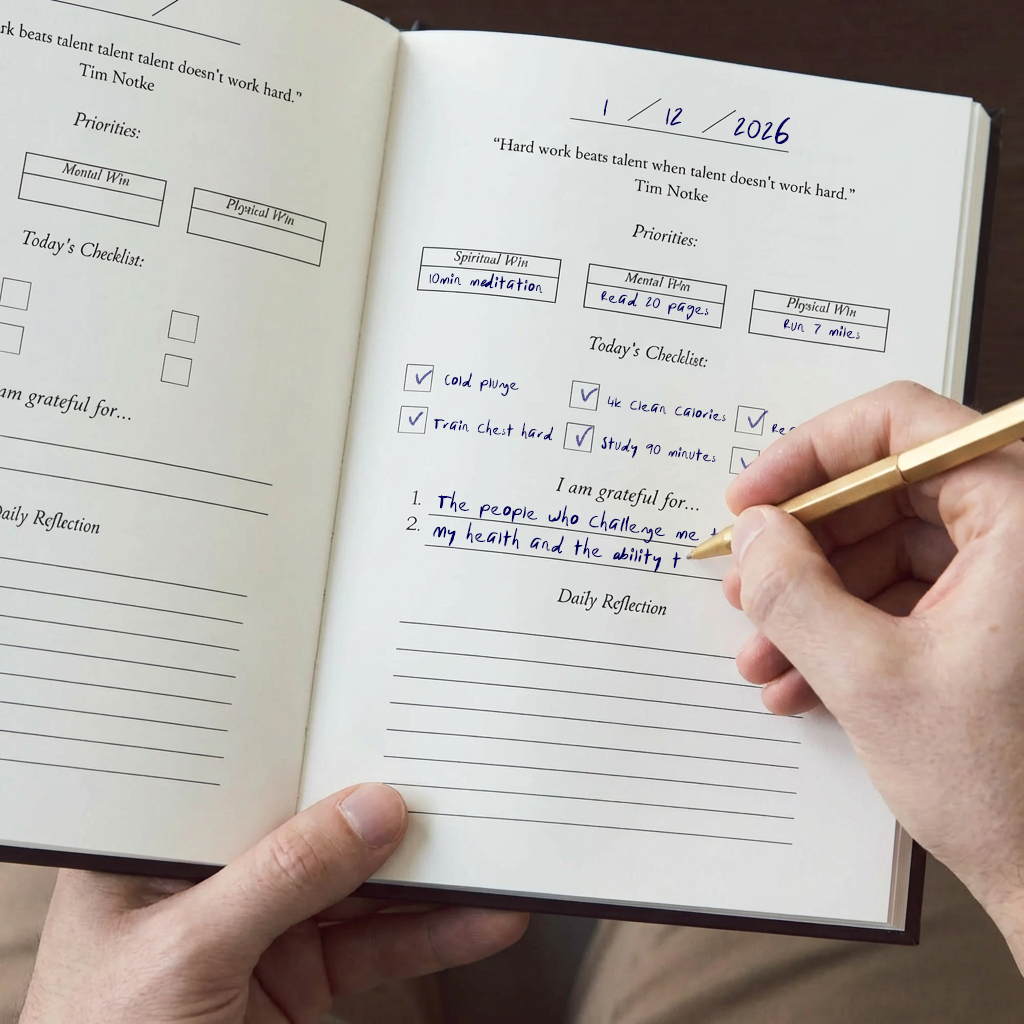 rk beats talent talent talent doesn't work hard."
Tim Notke
Priorities:
Montal Win
Physical Win
Today's Checklist:
am grateful for...
Daily Reflection
1 / 12 / 2026
"Hard work beats talent when talent doesn't work hard."
Tim Notke
Priorities:
Spiritual Win
Mental Win
Physical Win
10min meditation
Read 20 pages
Run 7 miles
Today's Checklist:
Cold plunge
4k clean calories
Train chest hard
Study 90 minutes
I am grateful for...
1. The people who challenge me
2. my health and the ability t
Daily Reflection